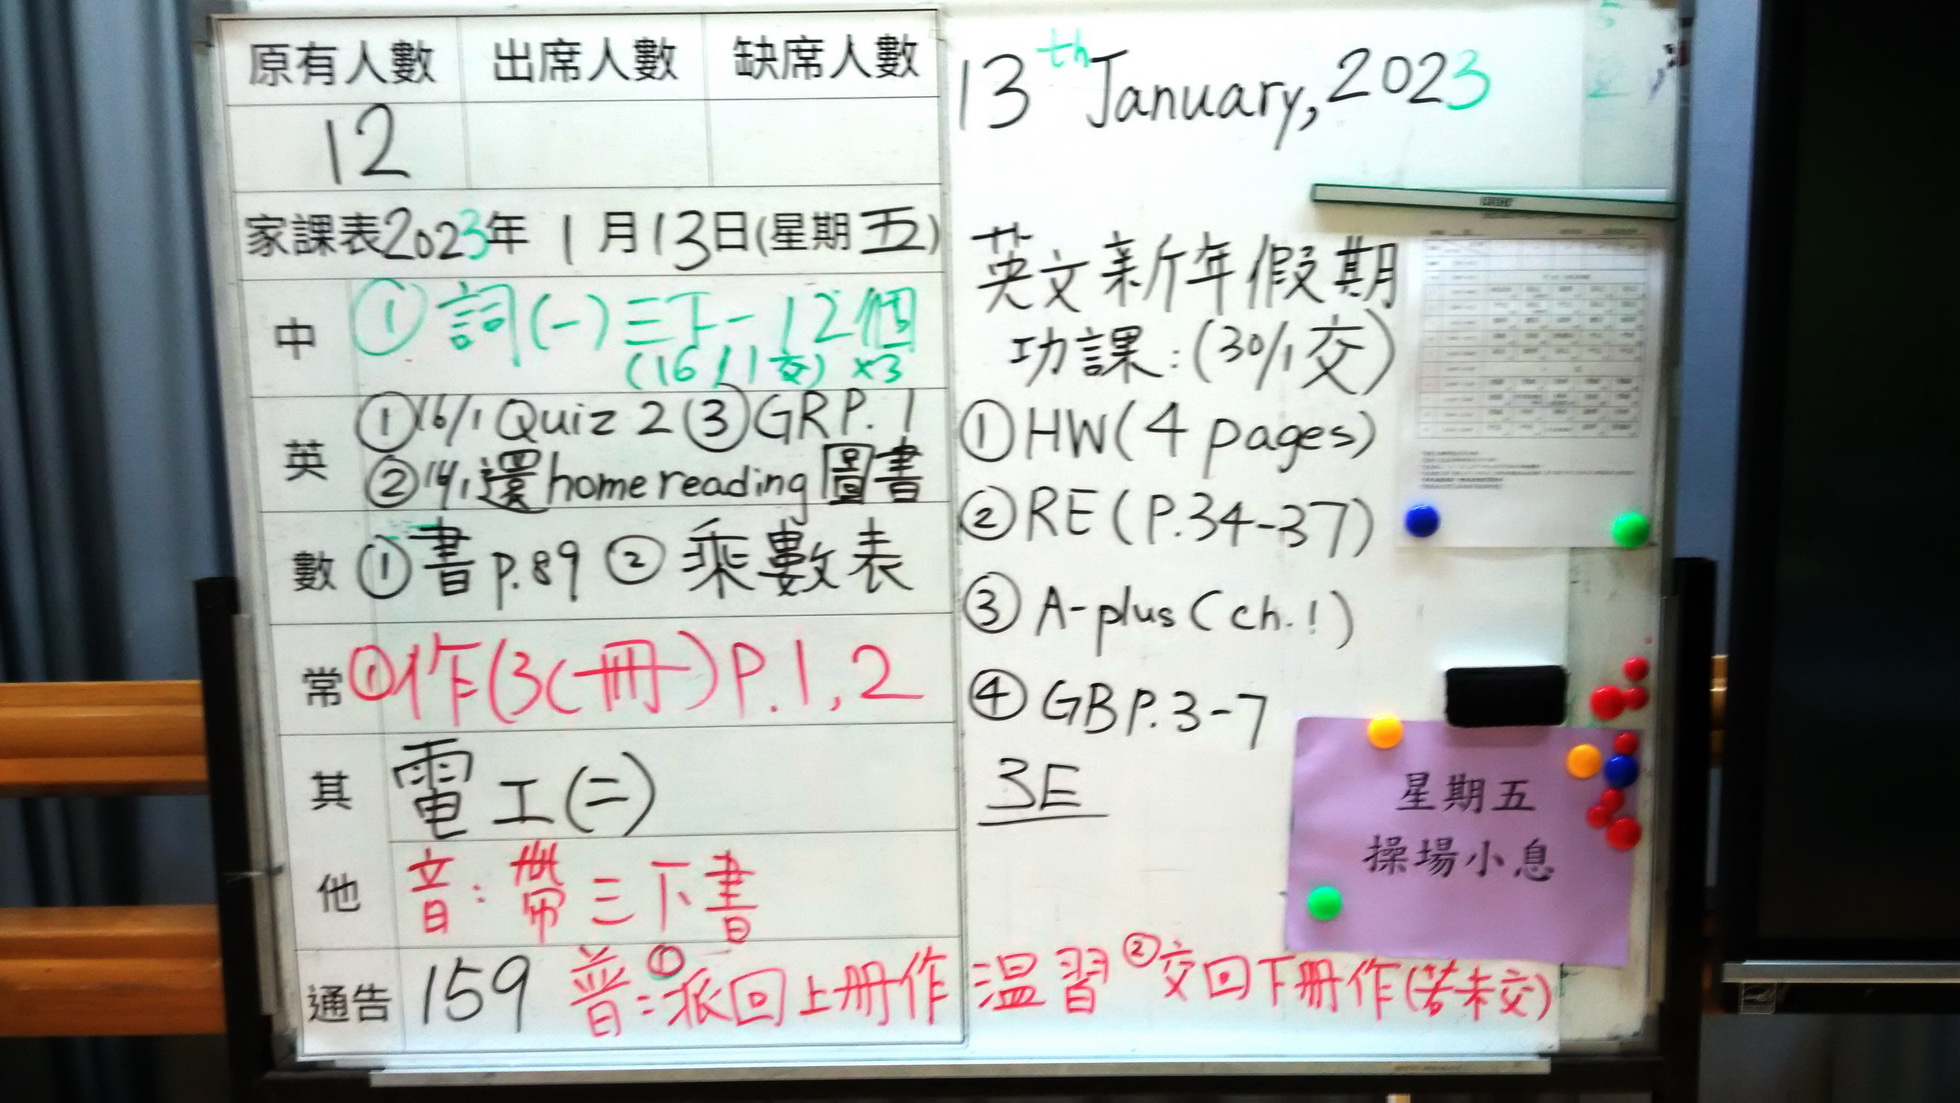 原有人數 出席人數 缺席人數
12
家課表2023年 1月13日(星期五)
中 ①詞(一)三下一12個
(16/1交) x3
英 ①16/1 Quiz 2 ③GRP.1
②還home reading圖書
數 ①書p.89 ②乘數表
常 ①作(3C冊)P.1,2
其他 電工(二)
音:帶三下書
通告 159 普:①派回上冊作 温習 ②交回下冊作(若未交)
13th January, 2023
英文新年假期
功課:(30/1交)
①HW(4 pages)
②RE(P.34-37)
③A-plus(ch.1)
④GBP.3-7
3E
星期五
操場小息